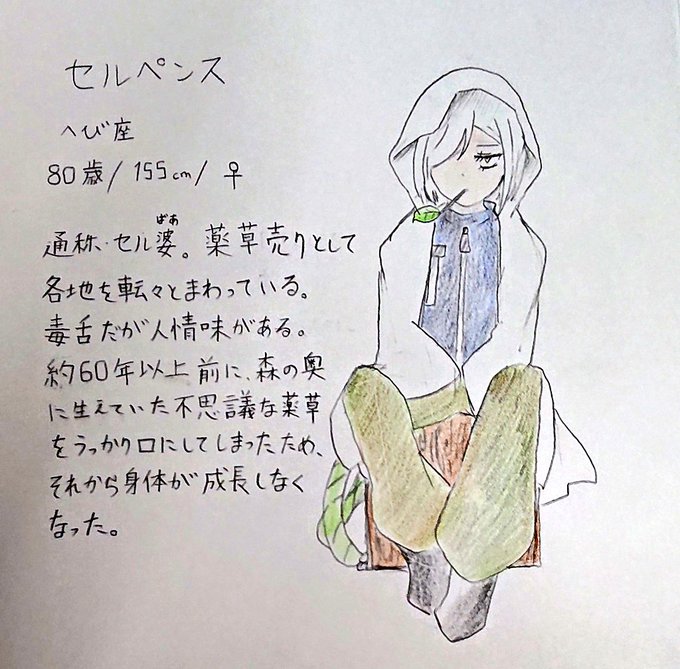 セルペンス
へび座
80歳/155cm/♀
通称・セル婆。薬草売りとして
ばあ
各地を転々とまわっている。
毒舌だが人情味がある。
約60年以上前に、森の奥
に生えていた不思議な薬草
をうっかり口にしてしまったため、
それから身体が成長しなく
なった。